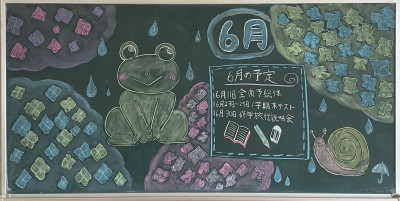 6月
6月の予定
6月11日 全商予総体
6月27日~29日 1学期末テスト
6月30日 修学旅行説明会